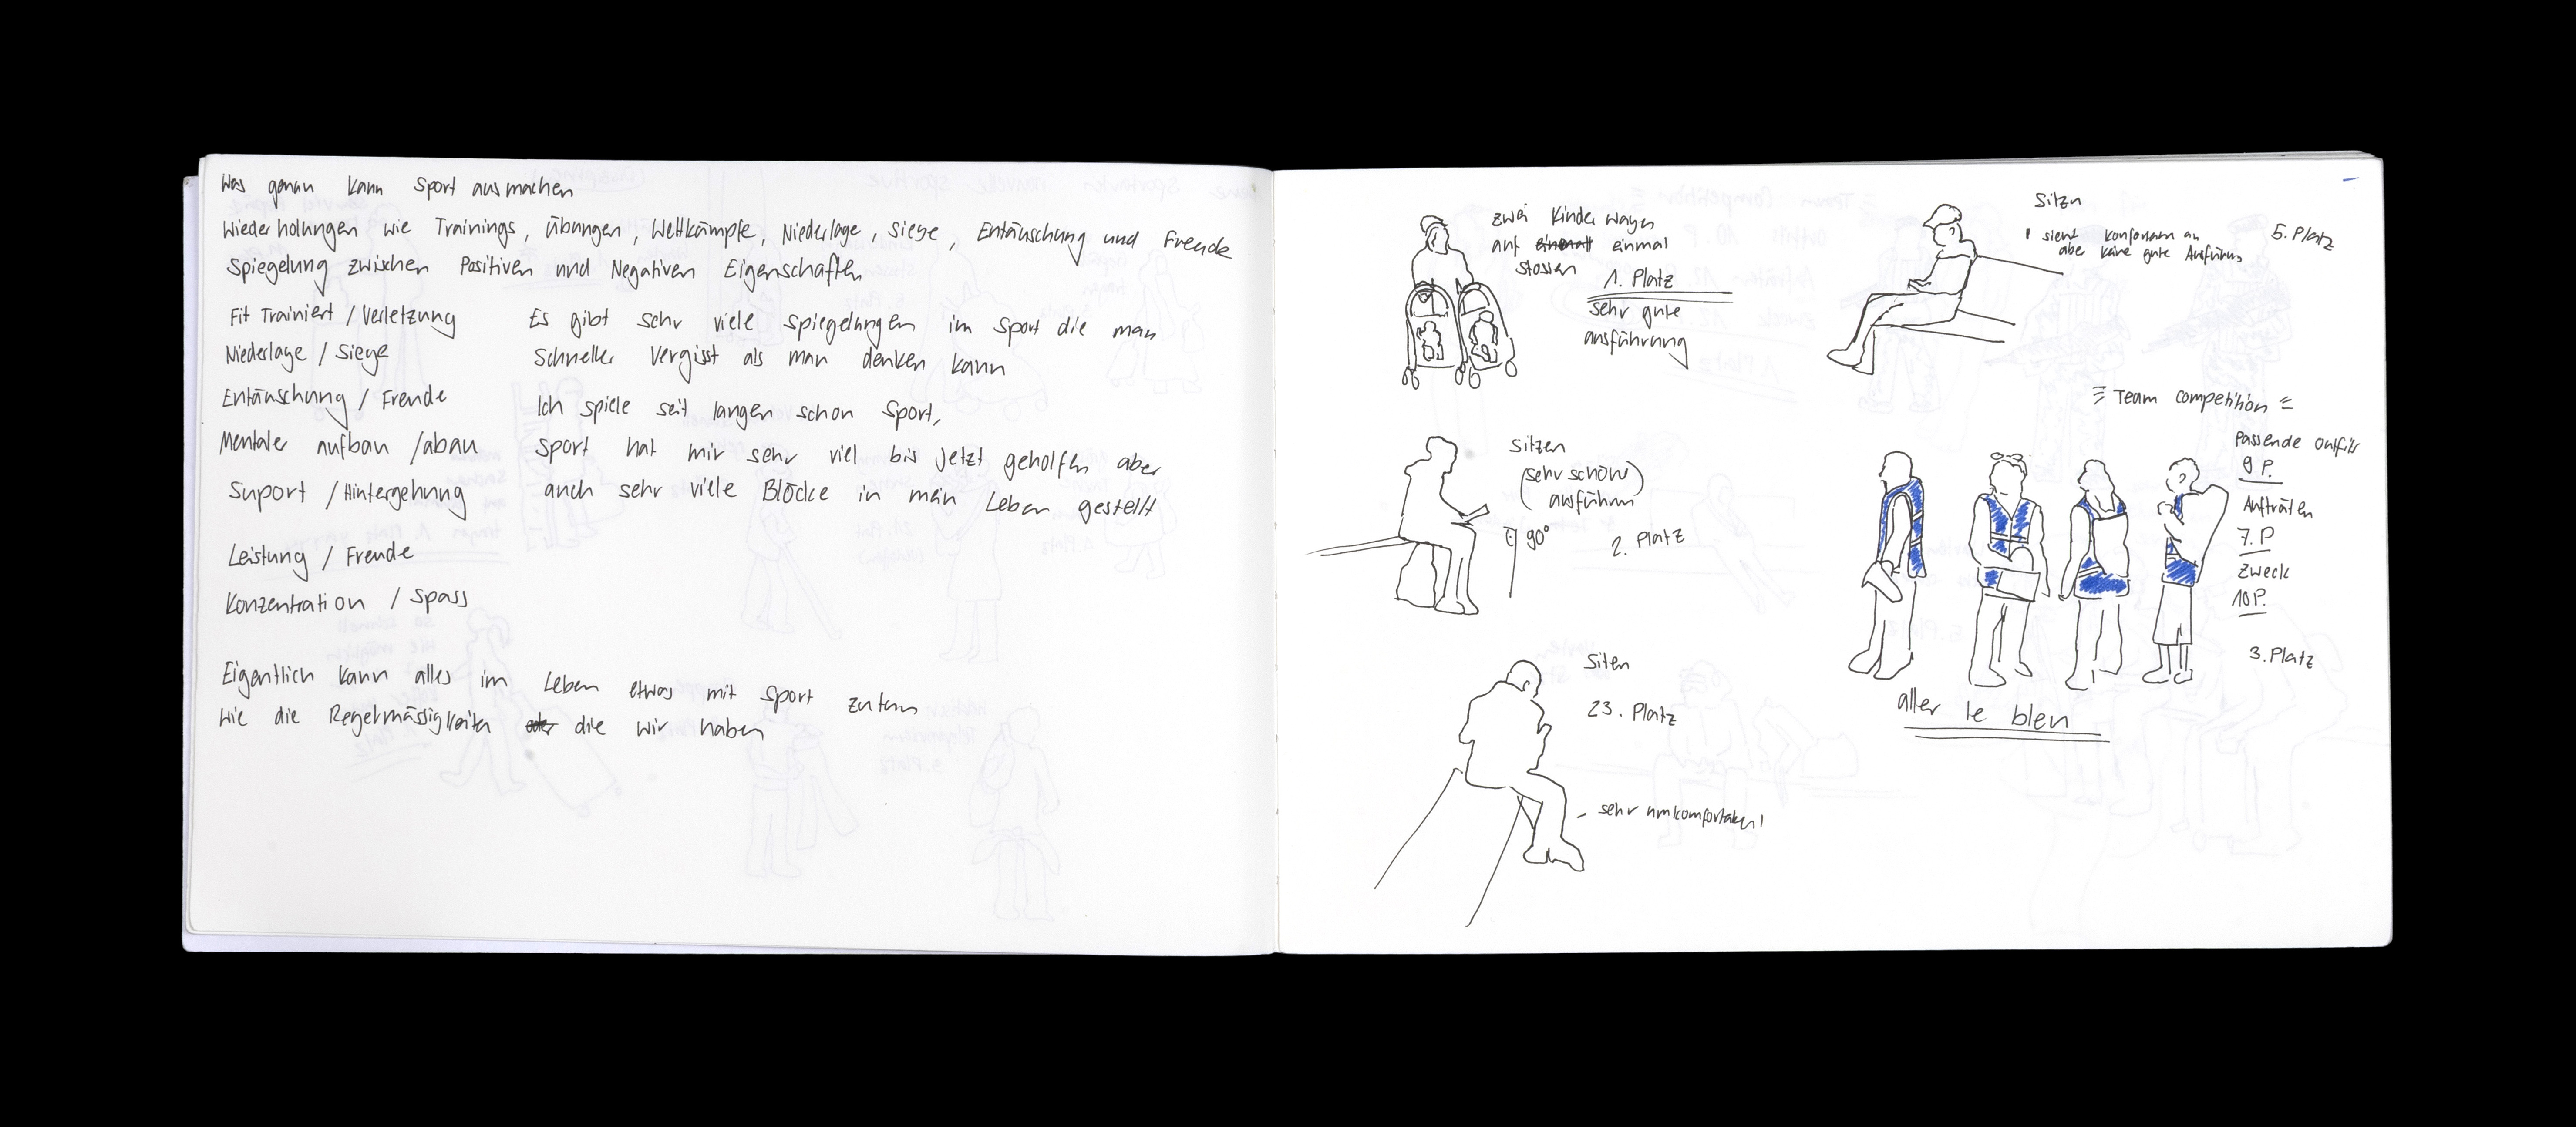 Was genau kann Sport ausmachen
Wiederholungen wie Trainings, Übungen, Wettkämpfe, Niederlage, Siege, Entäuschung und Freude
Spiegelung zwischen Positiven und Negativen Eigenschaften
Fit Trainiert / Verletzung
Niederlage / Siege
Entäuschung / Freude
Mentaler aufbau / abau
Suport / Hintergehung
Leistung / Freude
Konzentration / Spass
Es gibt sehr viele Spiegelungen im Sport die man
Schneller Vergisst als man denken kann
Ich spiele seit langen schon Sport,
Sport hat mir sehr viel bis jetzt geholfen aber
auch sehr viele Blöcke in mein Leben gestellt
Eigentlich kann alles im Leben etwas mit Sport zutun
wie die Regelmässigkeiten die wir haben
zwei Kinderwagen
auf einmal
stossen
1. Platz
sehr gute
ausführung
Sitzn
sieht komfortam an
aber keine gute Ausführung
5. Platz
Sitzen
(sehr schön)
ausführen
90°
2. Platz
Team competition
Passende Outfits
9 P.
Aufträten
7. P
Zweck
10 P.
3. Platz
aller le bleu
Siten
23. Platz
sehr umkomfortabel!